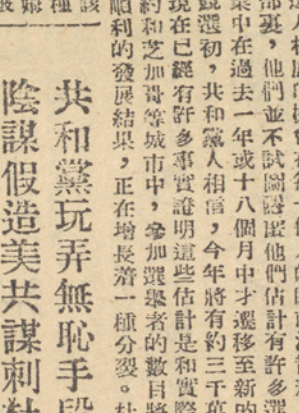 部裏,他們並不試圖隱匿他們估計有許多選
集中在過去一年或十八個月中才遷移至新的
競選初,共和黨人相信,今年將有約三千萬
現在已經有許多事實證明這些估計是和實際
約和芝加哥等城市中,參加選舉者的數目將
順利的發展結果,正在增長着一種分裂。杜
共和黨玩弄無恥手段
陰謀假造美共謀刺杜